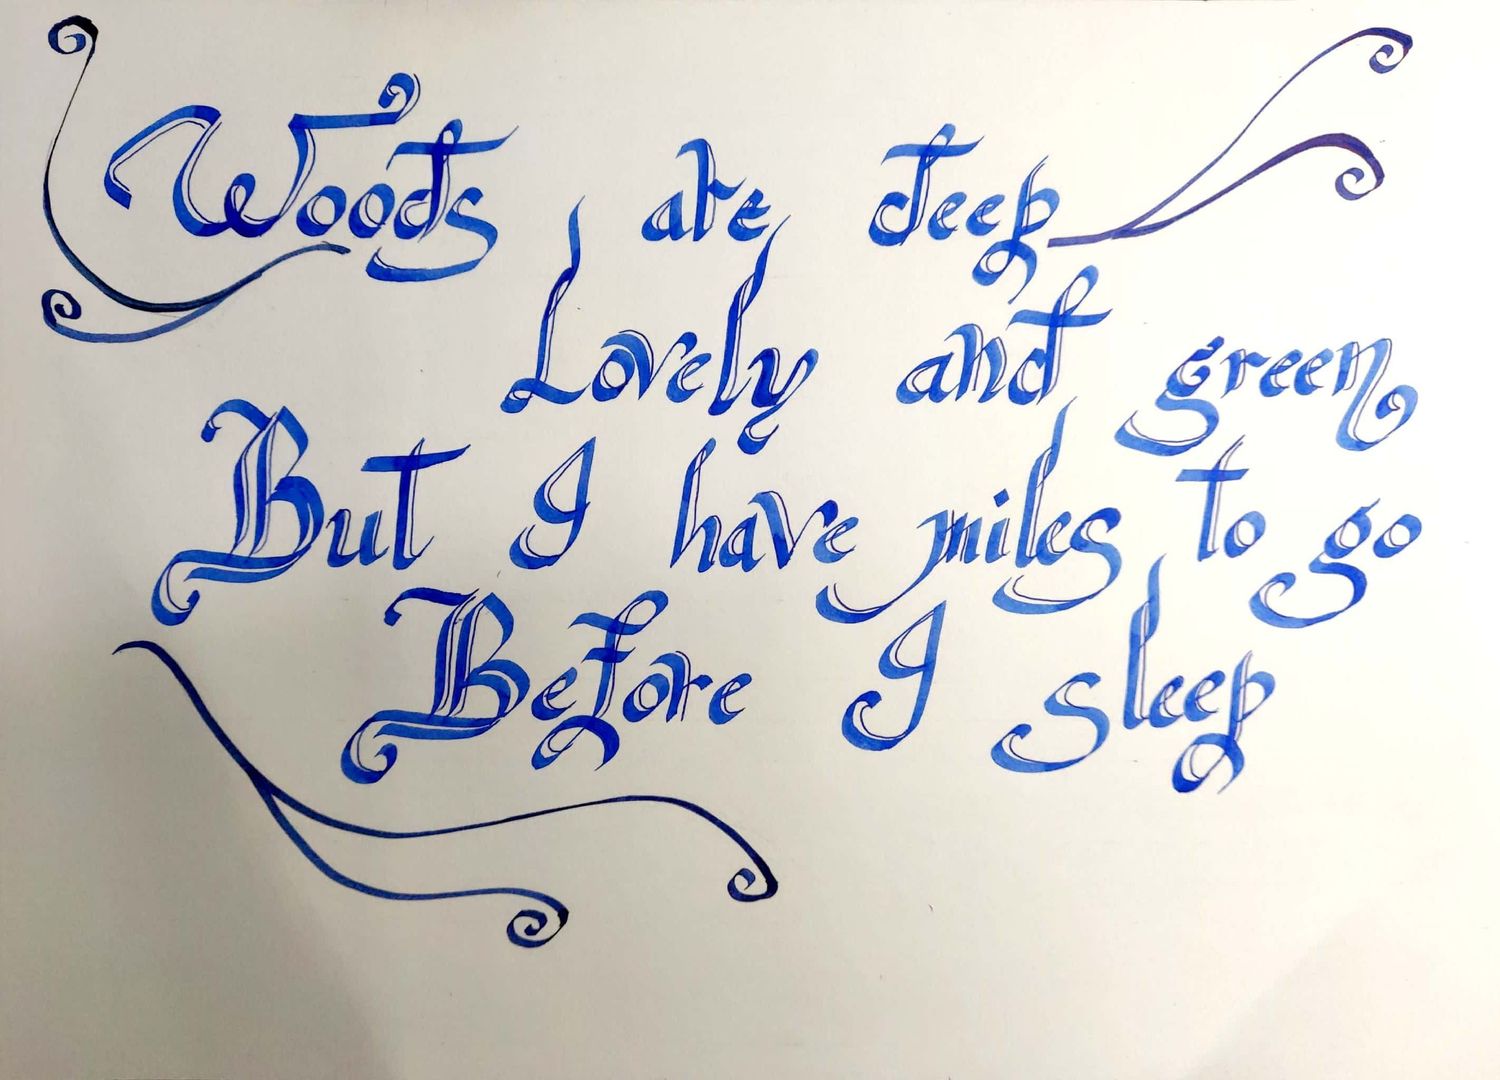 Woods are deep
Lovely and green
But I have miles to go
Before I sleep